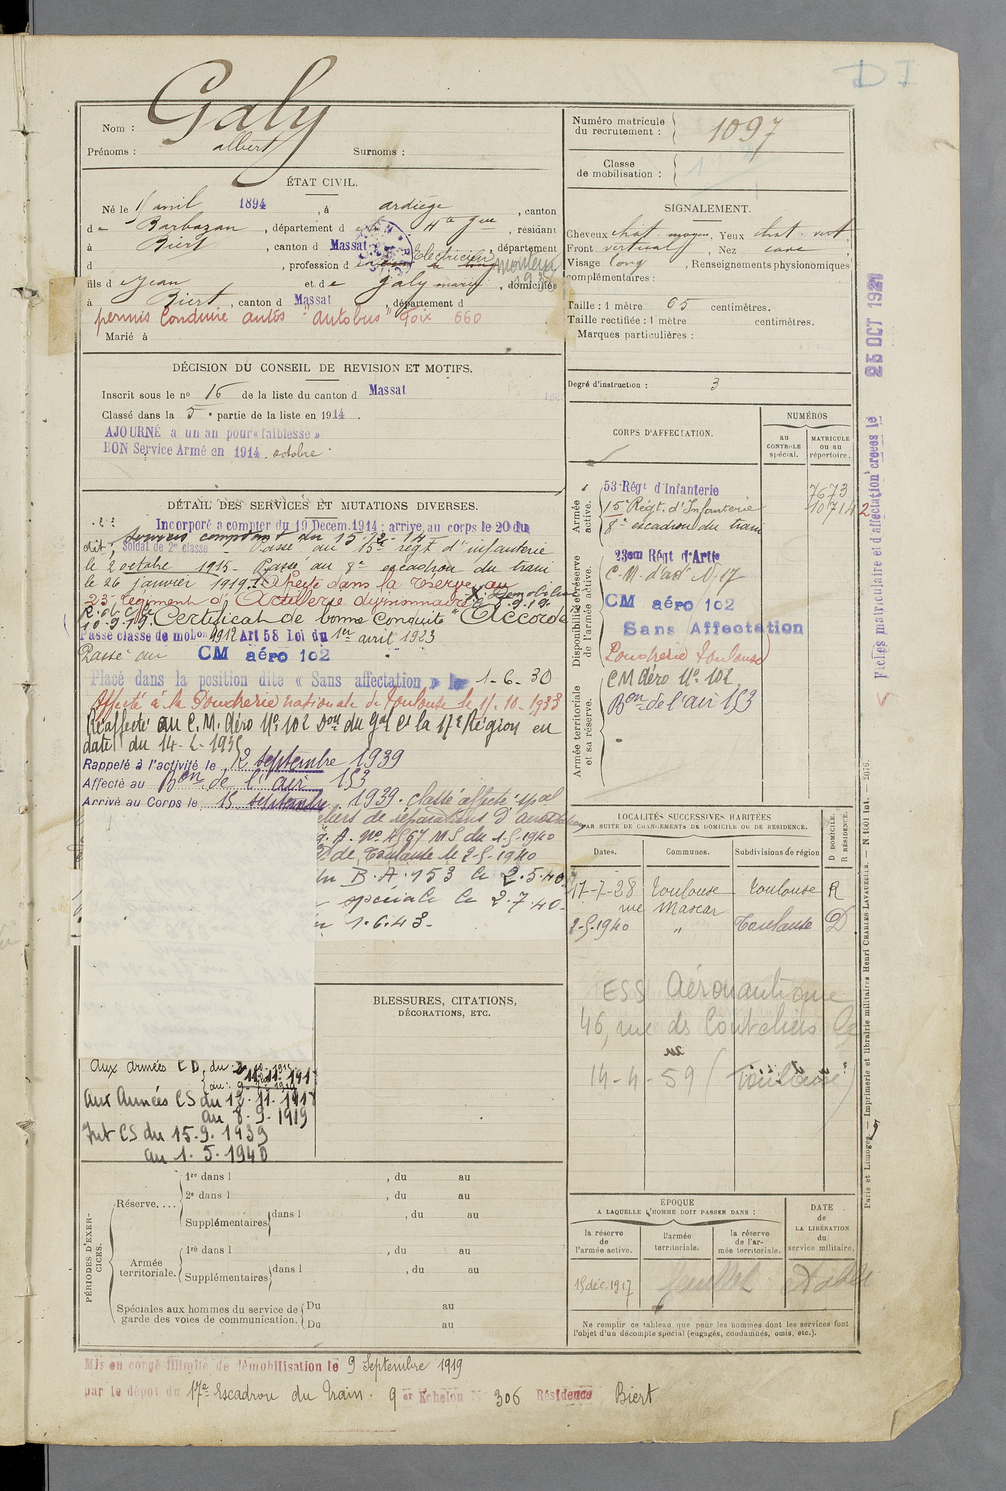 D I
Nom : Galy
Prénoms : albert Surnoms :
Numéro matricule
du recrutement : 1097
Classe
de mobilisation :
ÉTAT CIVIL.
Né le 1 avril 1894, à ardiège, canton
de Barbazan, département d Hte Gne, résidant
à Biert, canton d Massat, département
d , profession d Electricien monteur
fils de Jean et de Galy marie, domiciliés
à Biert, canton d Massat, département d
permis Conduire autos "autobus" Foix 660
Marié à
SIGNALEMENT.
Cheveux chat. moyen, Yeux chat. vert
Front vertical, Nez cave
Visage long, Renseignements physionomiques
complémentaires :
Taille : 1 mètre 65 centimètres.
Taille rectifiée : 1 mètre centimètres.
Marques particulières :
Degré d'instruction : 3
DÉCISION DU CONSEIL DE REVISION ET MOTIFS.
Inscrit sous le no 16 de la liste du canton d Massat
Classé dans la 5e partie de la liste en 1914.
AJOURNÉ à un an pour « faiblesse »
BON Service Armé en 1914. octobre
DÉTAIL DES SERVICES ET MUTATIONS DIVERSES.
Incorporé à compter du 19 Décem. 1914; arrivé au corps le 20 du
Services comptent du 15-12-14
dit, Soldat de 2me classe - Passé au 15e régt d'infanterie
le 2 octobre 1915 - Passé au 8e escadron du train
le 26 janvier 1917. Affecté dans la réserve au
23e régiment d'Artillerie divisionnaire X Démobilisé
10-9-19 Certificat de bonne Conduite "Accordé"
Passé classe de mobon 1912 Art 58 Loi du 1er avril 1923
Passé au CM aéro 102
Placé dans la position dite « Sans affectation » le 1-6-30
Affecté à la Poudrerie nationale de Toulouse le 15.10.1933
Réaffecté au C.M. Aéro No 102 Don du Gal Ct la 17e Région en
date du 14-2-193
Rappelé à l'activité le 12 septembre 1939
Affecté au Bon de l'air 153
Arrivé au Corps le 15 septembre 1939. classé affecté spal
liers de réparations d'aéro
G. A. No 4567 M S du 1-5-1940
de Toulouse le 2-5-1940
du B.A. 153 le 2.5.40
spéciale le 2.7.40
1.6.43
CORPS D'AFFECTATION.
NUMÉROS
AU CONTROLE spécial.
MATRICULE ou au répertoire.
Armée active.
53 Régt d'Infanterie 7673
15e Régt. d'Infanterie 10714
8e escadron du train
Disponibilité et réserve de l'armée active.
23em Régt d'Artie
C.M. d'art No 17
CM aéro 102
Sans Affectation
Poudrerie Toulouse
CM Aéro No 102
Armée territoriale et sa réserve.
Bon de l'air 153
Fiches matriculaire et d'affectation créées le 25 OCT 192
LOCALITÉS SUCCESSIVES HABITÉES
PAR SUITE DE CHANGEMENTS DE DOMICILE OU DE RÉSIDENCE.
Dates. Communes. Subdivisions de région D DOMICILE. R RÉSIDENCE.
17-7-28 Toulouse Toulouse R
rue Mascar
2-5-1940 " Toulouse D
ESS Aéronautique
46, rue ds
14-4-59 (Toulouse)
BLESSURES, CITATIONS,
DÉCORATIONS, ETC.
Aux armées CD du
Aux Armées CS du 12.11.191
au 8.9.1919
Int CS du 15.9.1939
au 1.5.1940
PÉRIODES D'EXERCICES.
Réserve....
1re dans l , du au
2e dans l , du au
Supplémentaires dans l , du au
Armée territoriale.
1re dans l , du au
Supplémentaires dans l , du au
Spéciales aux hommes du service de
garde des voies de communication.
Du au
Du au
ÉPOQUE
A LAQUELLE L'HOMME DOIT PASSER DANS :
la réserve de l'armée active.
l'armée territoriale.
la réserve de l'armée territoriale.
DATE de LA LIBÉRATION du service militaire.
15 déc. 1917
Ne remplir ce tableau que pour les hommes dont les services font
l'objet d'un décompte spécial (engagés, condamnés, omis, etc.).
Paris et Limoges. — Imprimerie et librairie militaires Henri CHARLES-LAVAUZELLE. — N 1601 Int. — 2076.
Mis en congé illimité de démobilisation le 9 Septembre 1919
par le dépôt du 17e Escadron du Train. 9 er Echelon N 306 Résidence Biert